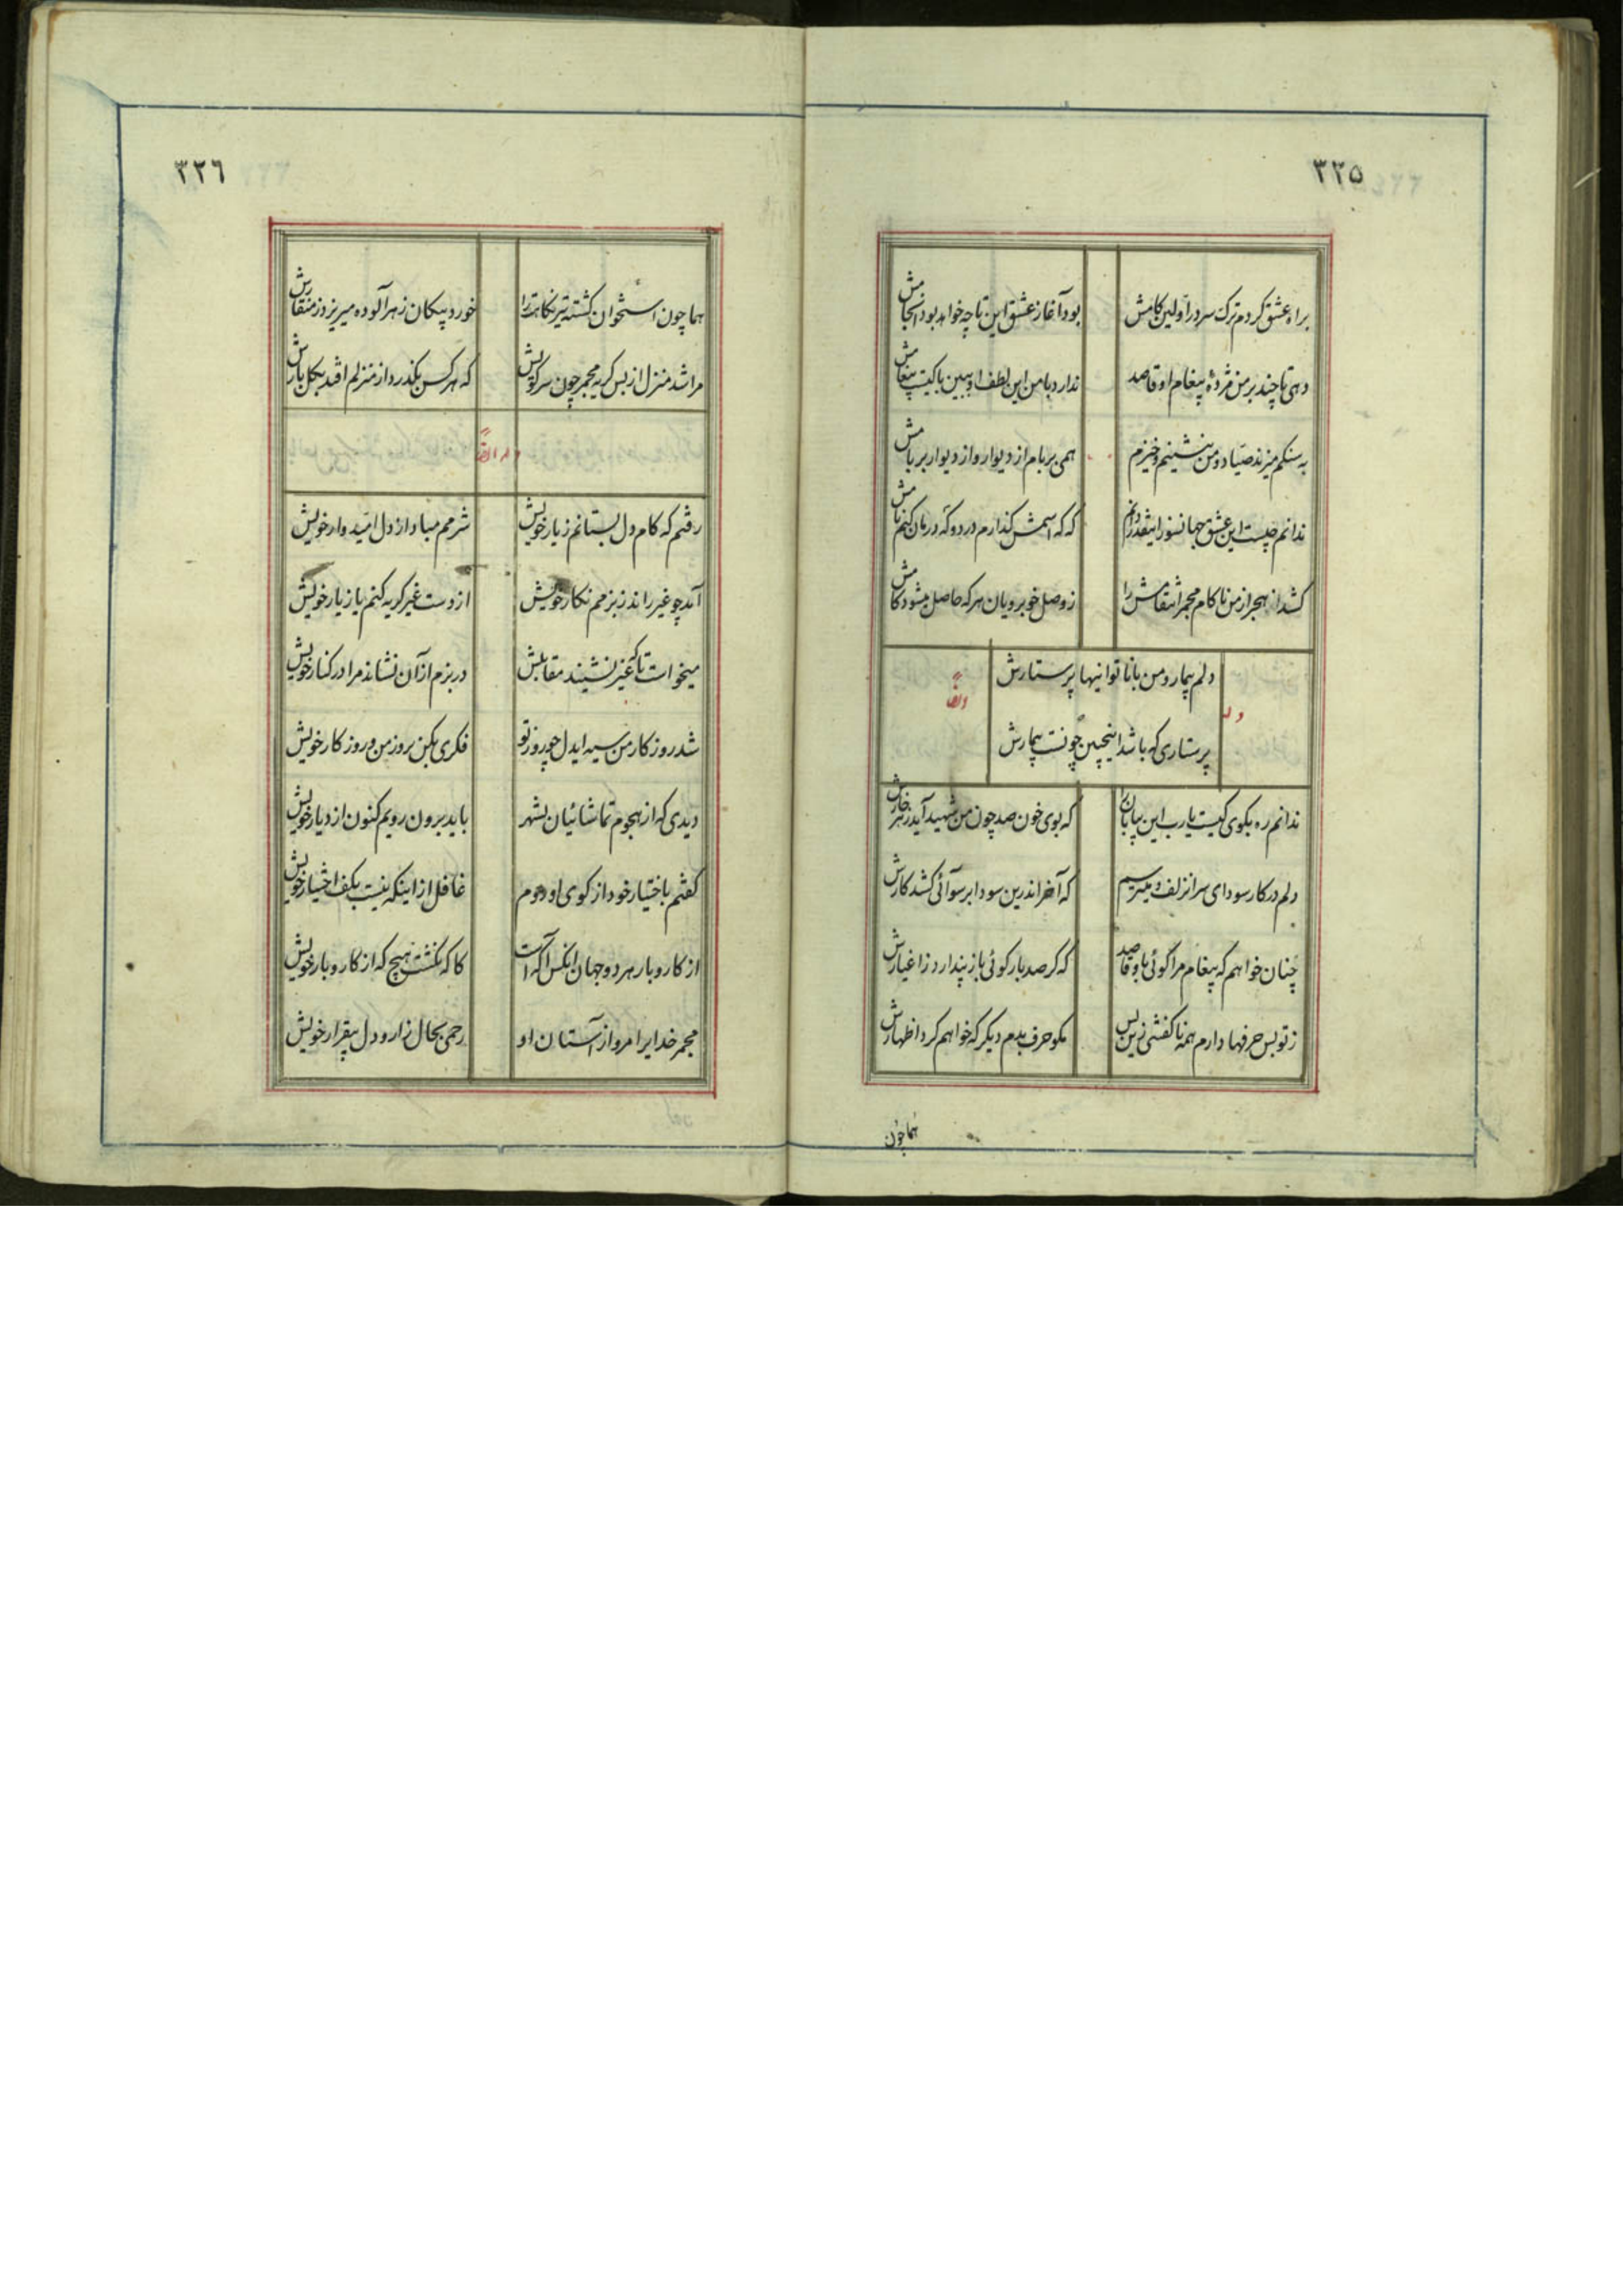 ٣٢٥
براه عشق کردم ترک سر در اولین کامش بود آغاز عشق این تا چه خواهد بود انجامش
دهی تا چند بر من مژدهٔ پیغام او قاصد ندارد با من این لطف او ببین با کیست پیغامش
به سنکم میزند صیاد و من بنشینم و خیزم همی بر بام از دیوار و از دیوار بر بامش
ندانم چیست این عشق جهانسوز اینقدر دانم که که اسمش کذارم درد و که درمان کنم نامش
کشد از هجر از من ناکام مجمر انتقامش را ز وصل خوبرویان هر که حاصل میشود کامش
وله ایضاً
دلم بیمار و من با ناتوانیها پرستارش
پرستاری که باشد اینچنین چونست بیمارش
ندانم ره بکوی کیست یارب این بیابان را که بوی خون صد چون من شهید آید ز هر خارش
دلم در کار سودای سر زلف و میترسم که آخر اندرین سودا برسوائی کشد کارش
چنان خواهم که پیغام مرا کوئی باو قاصد که کر صد بار کوئی باز پندارد ز اغیارش
ز تو بس حرفها دارم همه ناکفتنی زین پس مکو حرف بدم دیکر که خواهم کرد اظهارش
هما چون
٣٢٦
هما چون استخوان کشته تیر نکاهت را خورد پیکان زهرآلوده میریزد ز منقارش
مرا شد منزل از بس کریه مجمر چون سر کویش که هر کس بکذرد از منزلم افتد بکل بارش
وله ایضاً
رفتم که کام دل بستانم ز یار خویش شرمم مباد از دل امیدوار خویش
آمد چو غیر راند ز بزمم نکار خویش از دست غیر کریه کنم یا ز یار خویش
میخواست تا که غیر نشیند مقابلش در بزم از آن نشاند مرا در کنار خویش
شد روزکار من سیه ایدل چو روز تو فکری بکن بروز من و روزکار خویش
دیدی که از هجوم تماشائیان بشهر باید برون رویم کنون از دیار خویش
کفتم باختیار خود از کوی او روم غافل از اینکه نیست بکف اختیار خویش
از کار و بار هر دو جهان انکس آکه است کاکه نکشت هیچ که از کار و بار خویش
مجمر خدایرا مرو از آستان او رحمی بحال زار و دل بیقرار خویش